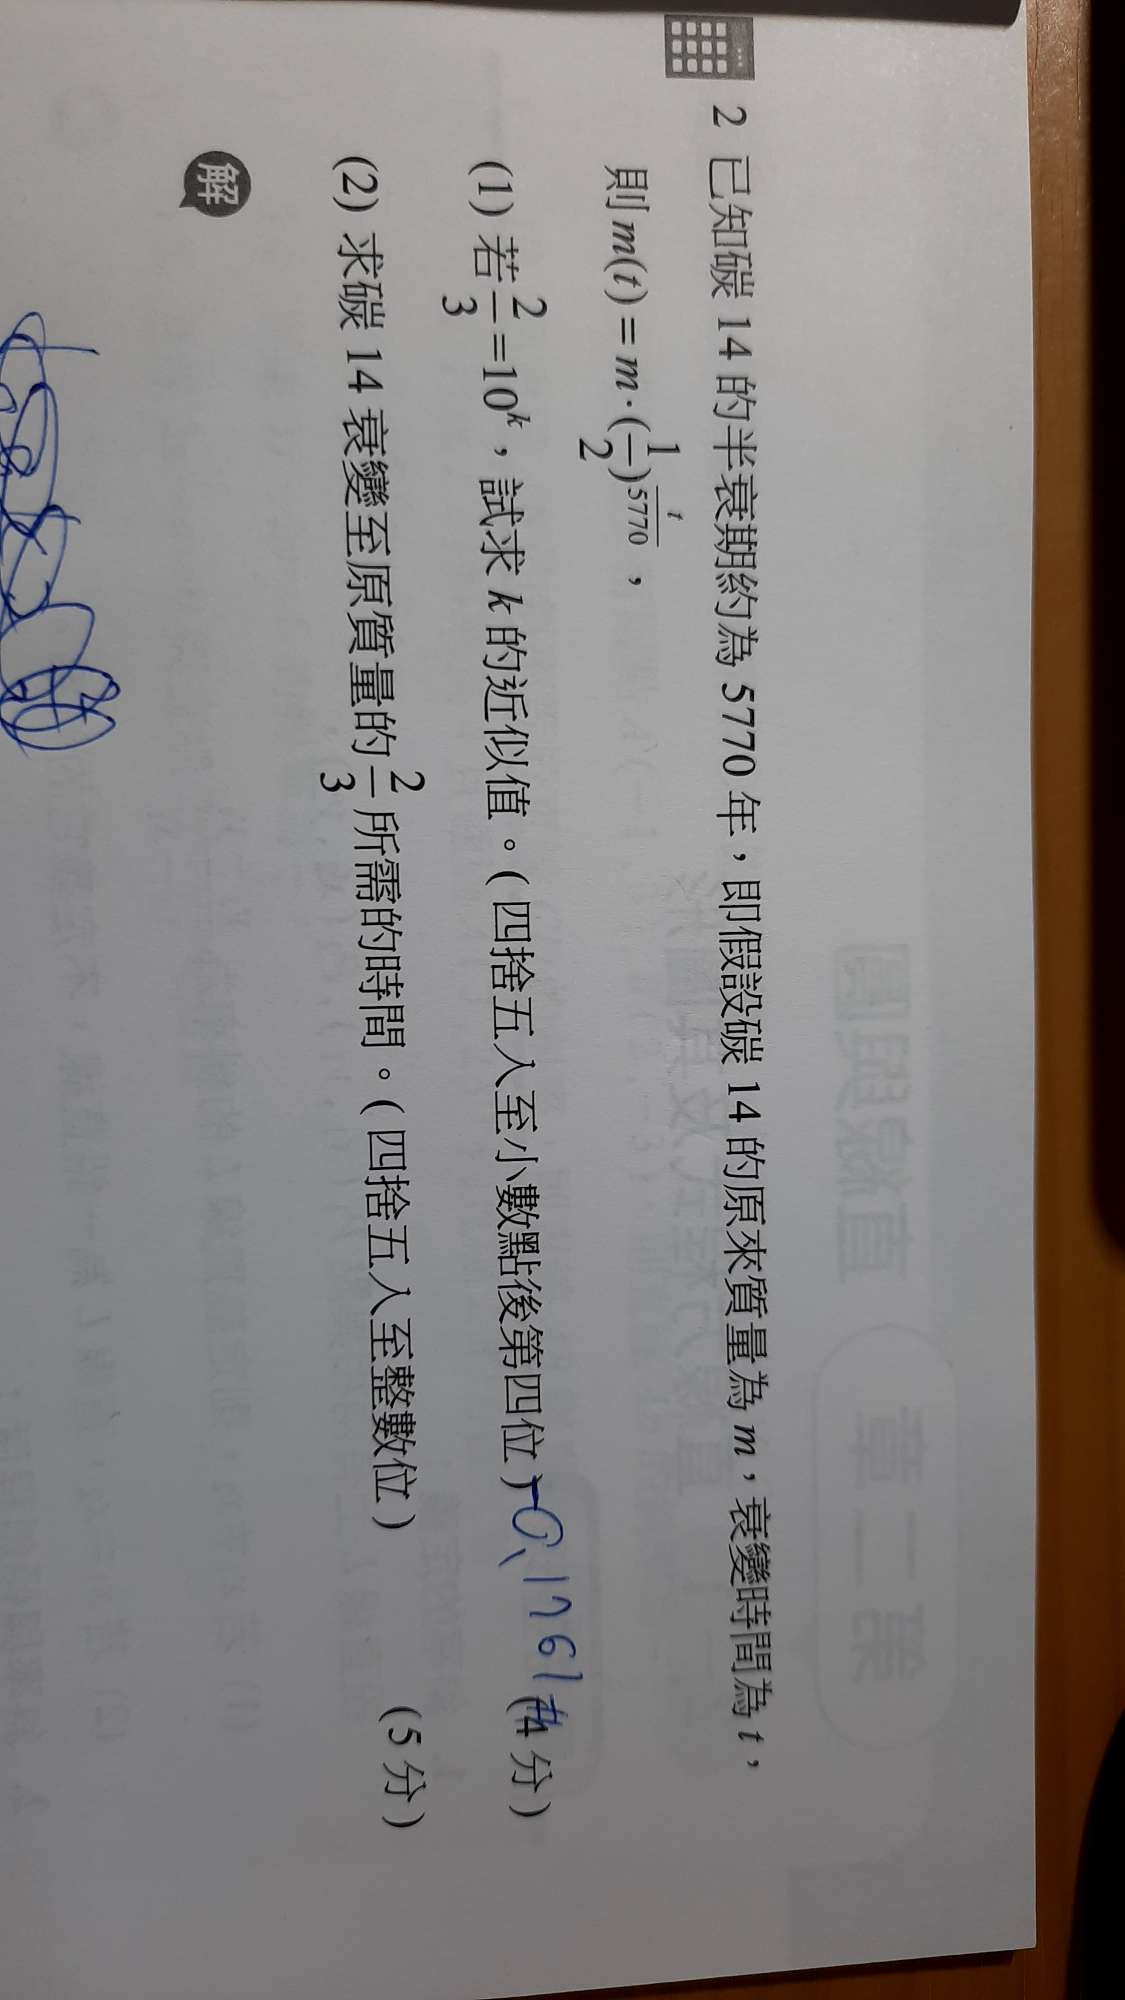 2 已知碳 14 的半衰期約為 5770 年，即假設碳 14 的原來質量為 m，衰變時間為 t，
則 m(t) = m·(1/2)^(t/5770)，
(1) 若 2/3 = 10^k，試求 k 的近似值。(四捨五入至小數點後第四位) -0.1761# (4 分)
(2) 求碳 14 衰變至原質量的 2/3 所需的時間。(四捨五入至整數位) (5 分)
解